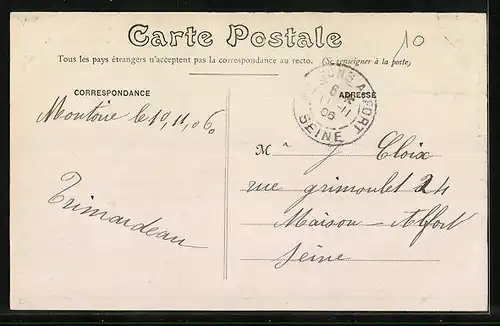 Carte Postale
10
Tous les pays étrangers n'acceptent pas la correspondance au recto. (Se renseigner à la poste)
CORRESPONDANCE
ADRESSE
ALFORT
6
11-11
06
SEINE
Montoire le 10, 11, 06.
Trimardeau
M J Cloix
rue grimoulet 24
Maison-Alfort
Seine